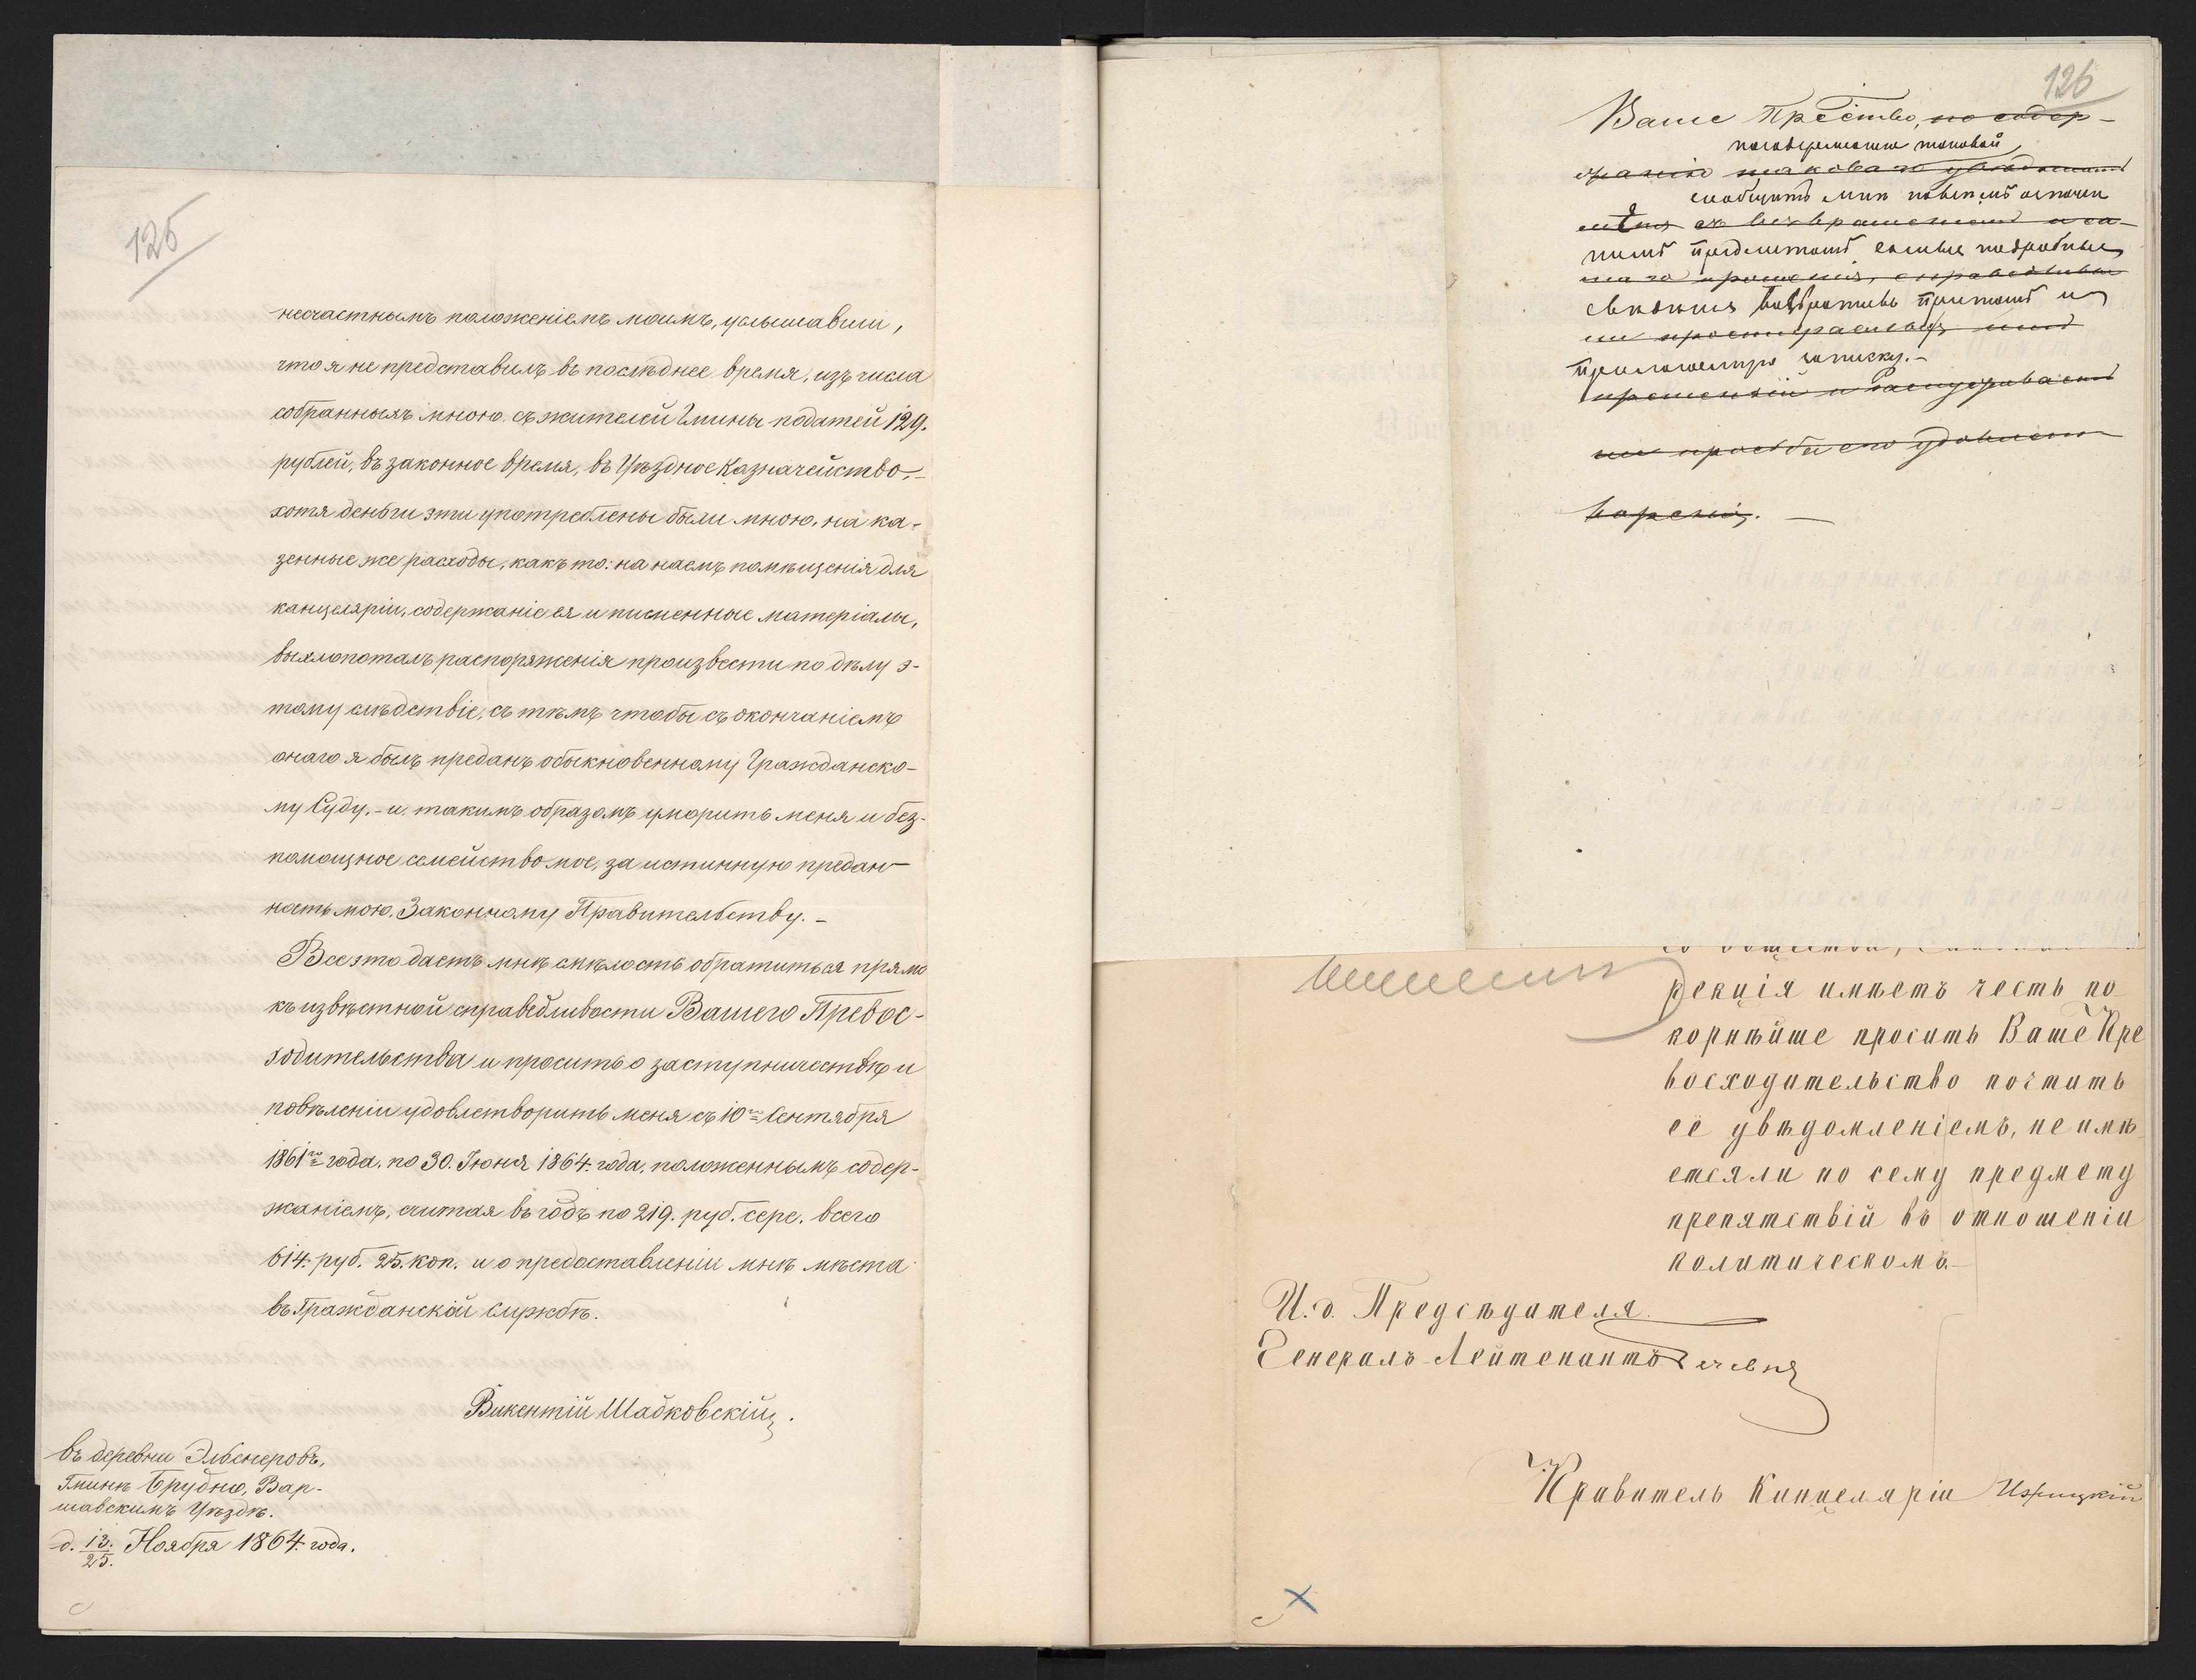 125
несчастнымъ положеніемъ моимъ, услышавши,
что я не представилъ въ послѣднее время, изъ числа
собранныхъ мною съ жителей Гмины податей 129.
рублей, въ законное время, въ Уѣздное Казначейство,-
хотя деньги эти употреблены были мною, на ка-
зенные же расходы, какъ то: на наемъ помѣщенія для
канцеляріи, содержаніе ея и писменные матеріалы,
выхлопоталъ распоряженія произвести по дѣлу э-
тому слѣдствіе, съ тѣмъ чтобы съ окончаніемъ
онаго я былъ преданъ обыкновенному Гражданско-
му Суду, - и такимъ образомъ уморить меня и без-
помощное семейство мое, за истинную предан-
ность мою, Законному Правительству. -
Все это даетъ мнѣ смѣлость обратиться прямо
къ извѣстной справедливости Вашего Превос-
ходительства и просить о заступничествѣ и
повѣленіи удовлетворить меня съ 10го Сентября
1861го года, по 30. Іюня 1864. года, положеннымъ содер-
жаніемъ, считая въ годъ по 219. руб. сере. всего
614. руб. 25. коп. и о предоставленіи мнѣ мѣста
въ Гражданской службѣ.
Викентій Шадковскій.
въ деревни Эльснеровъ,
Гминѣ Брудно, Вар-
шавскимъ Уѣздѣ.
д. 13./25. Ноября 1864. года.
126
Ваше Пр-ство, по содер-
жанію таковаго
сообщить мнѣ
съ возвращеніемъ и са-
предметомъ подробныя
маго прошенія, справедливы
свѣденія возвративъ притомъ и
ли
приложенную записку. -
прошеній и заслуживаетъ
ли просьба его удовлетво-
воренія. -
рекція имѣетъ честь по-
корнѣйше просить Ваше Пре
восходительство почтить
ее увѣдомленіемъ, не имѣ-
ется ли по сему предмету
препятствій въ отношеніи
политическомъ. -
И. д. Предсѣдателя
Генералъ-Лейтенантъ
Правитель Канцеляріи